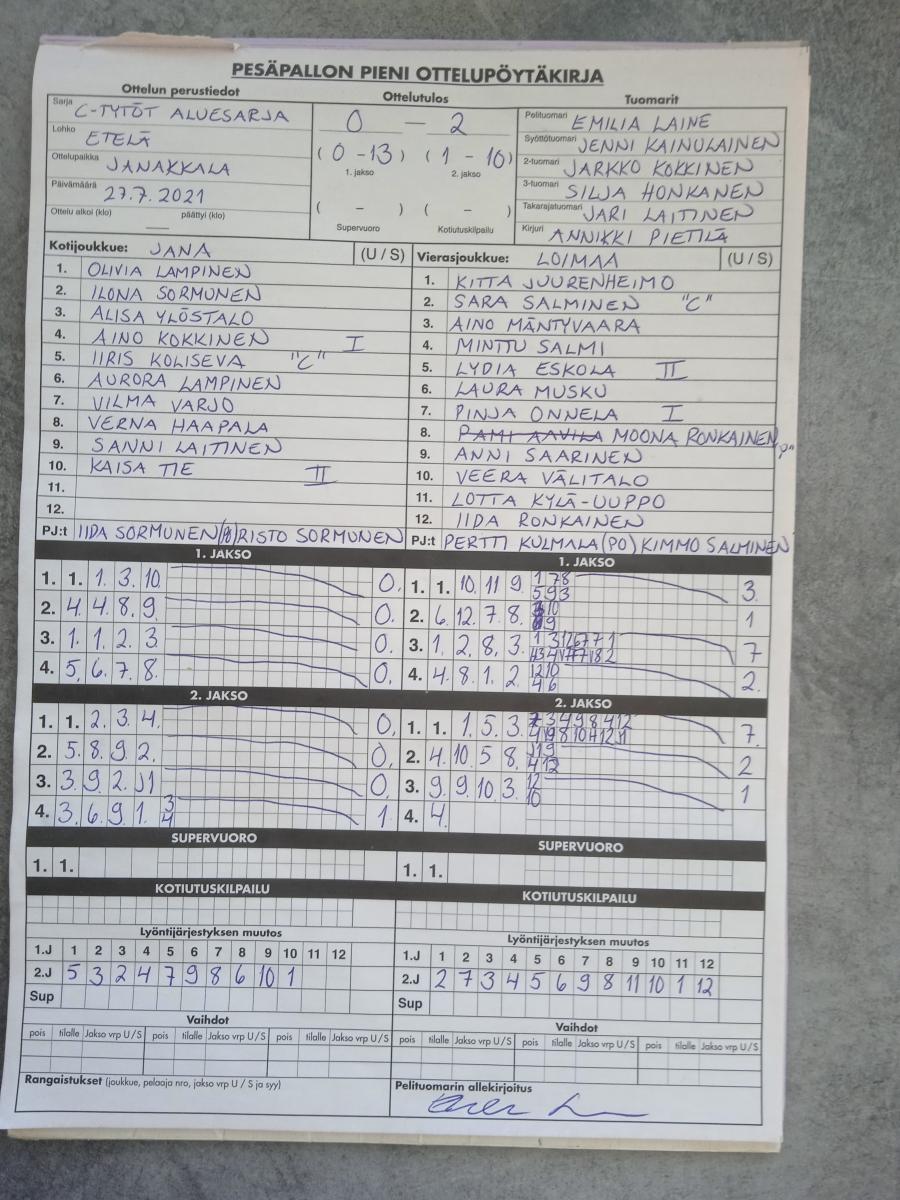 PESÄPALLON PIENI OTTELUPÖYTÄKIRJA
Ottelun perustiedot
Sarja C-TYTÖT ALUESARJA
Lohko ETELÄ
Ottelupaikka JANAKKALA
Päivämäärä 27.7.2021
Ottelu alkoi (klo) — päättyi (klo)
Ottelutulos
0 — 2
(0 - 13) (1 - 10)
1. jakso 2. jakso
( - ) ( - )
Supervuoro Kotiutuskilpailu
Tuomarit
Pelituomari EMILIA LAINE
Syöttötuomari JENNI KAINULAINEN
2-tuomari JARKKO KOKKINEN
3-tuomari SILJA HONKANEN
Takarajatuomari JARI LAITINEN
Kirjuri ANNIKKI PIETILÄ
Kotijoukkue: JANA (U / S)
1. OLIVIA LAMPINEN
2. ILONA SORMUNEN
3. ALISA YLÖSTALO
4. AINO KOKKINEN I
5. IIRIS KOLISEVA "C"
6. AURORA LAMPINEN
7. VILMA VARJO
8. VERNA HAAPALA
9. SANNI LAITINEN
10. KAISA TIE II
11.
12.
PJ:t IIDA SORMUNEN RISTO SORMUNEN
Vierasjoukkue: LOIMAA (U / S)
1. KITTA JUURENHEIMO
2. SARA SALMINEN "C"
3. AINO MÄNTYVAARA
4. MINTTU SALMI
5. LYDIA ESKOLA II
6. LAURA MUSKU
7. PINJA ONNELA I
8. PAMI AAVILA MOONA RONKAINEN "P"
9. ANNI SAARINEN
10. VEERA VÄLITALO
11. LOTTA KYLÄ-UUPPO
12. IIDA RONKAINEN
PJ:t PERTTI KULMALA (PO) KIMMO SALMINEN
1. JAKSO
1. 1. 1. 3. 10. 0.
2. 4. 4. 8. 9. 0.
3. 1. 1. 2. 3. 0.
4. 5. 6. 7. 8. 0.
2. JAKSO
1. 1. 2. 3. 4. 0.
2. 5. 8. 9. 2. 0.
3. 3. 9. 2. 11 0.
4. 3. 6. 9. 1. 3 1.
4
SUPERVUORO
1. 1.
KOTIUTUSKILPAILU
Lyöntijärjestyksen muutos
1.J 1 2 3 4 5 6 7 8 9 10 11 12
2.J 5 3 2 4 7 9 8 6 10 1
Sup
Vaihdot
pois tilalle Jakso vrp U / S pois tilalle Jakso vrp U / S pois tilalle Jakso vrp U / S
Rangaistukset (joukkue, pelaaja nro, jakso vrp U / S ja syy)
1. JAKSO
1. 1. 10. 11 9. 1 7 8 3.
5 9 3
2. 6. 12. 7. 8. 1
3. 1. 2. 8. 3. 7
4. 4. 8. 1. 2. 12 10 2.
4 6
2. JAKSO
1. 1. 1. 5. 3. 7.
2. 4. 10. 5 8. 11 9 2
4 12
3. 9. 9. 10. 3. 12 1
10
4. 4.
SUPERVUORO
1. 1.
KOTIUTUSKILPAILU
Lyöntijärjestyksen muutos
1.J 1 2 3 4 5 6 7 8 9 10 11 12
2.J 2 7 3 4 5 6 9 8 11 10 1 12
Sup
Vaihdot
pois tilalle Jakso vrp U / S pois tilalle Jakso vrp U / S pois tilalle Jakso vrp U / S
Pelituomarin allekirjoitus